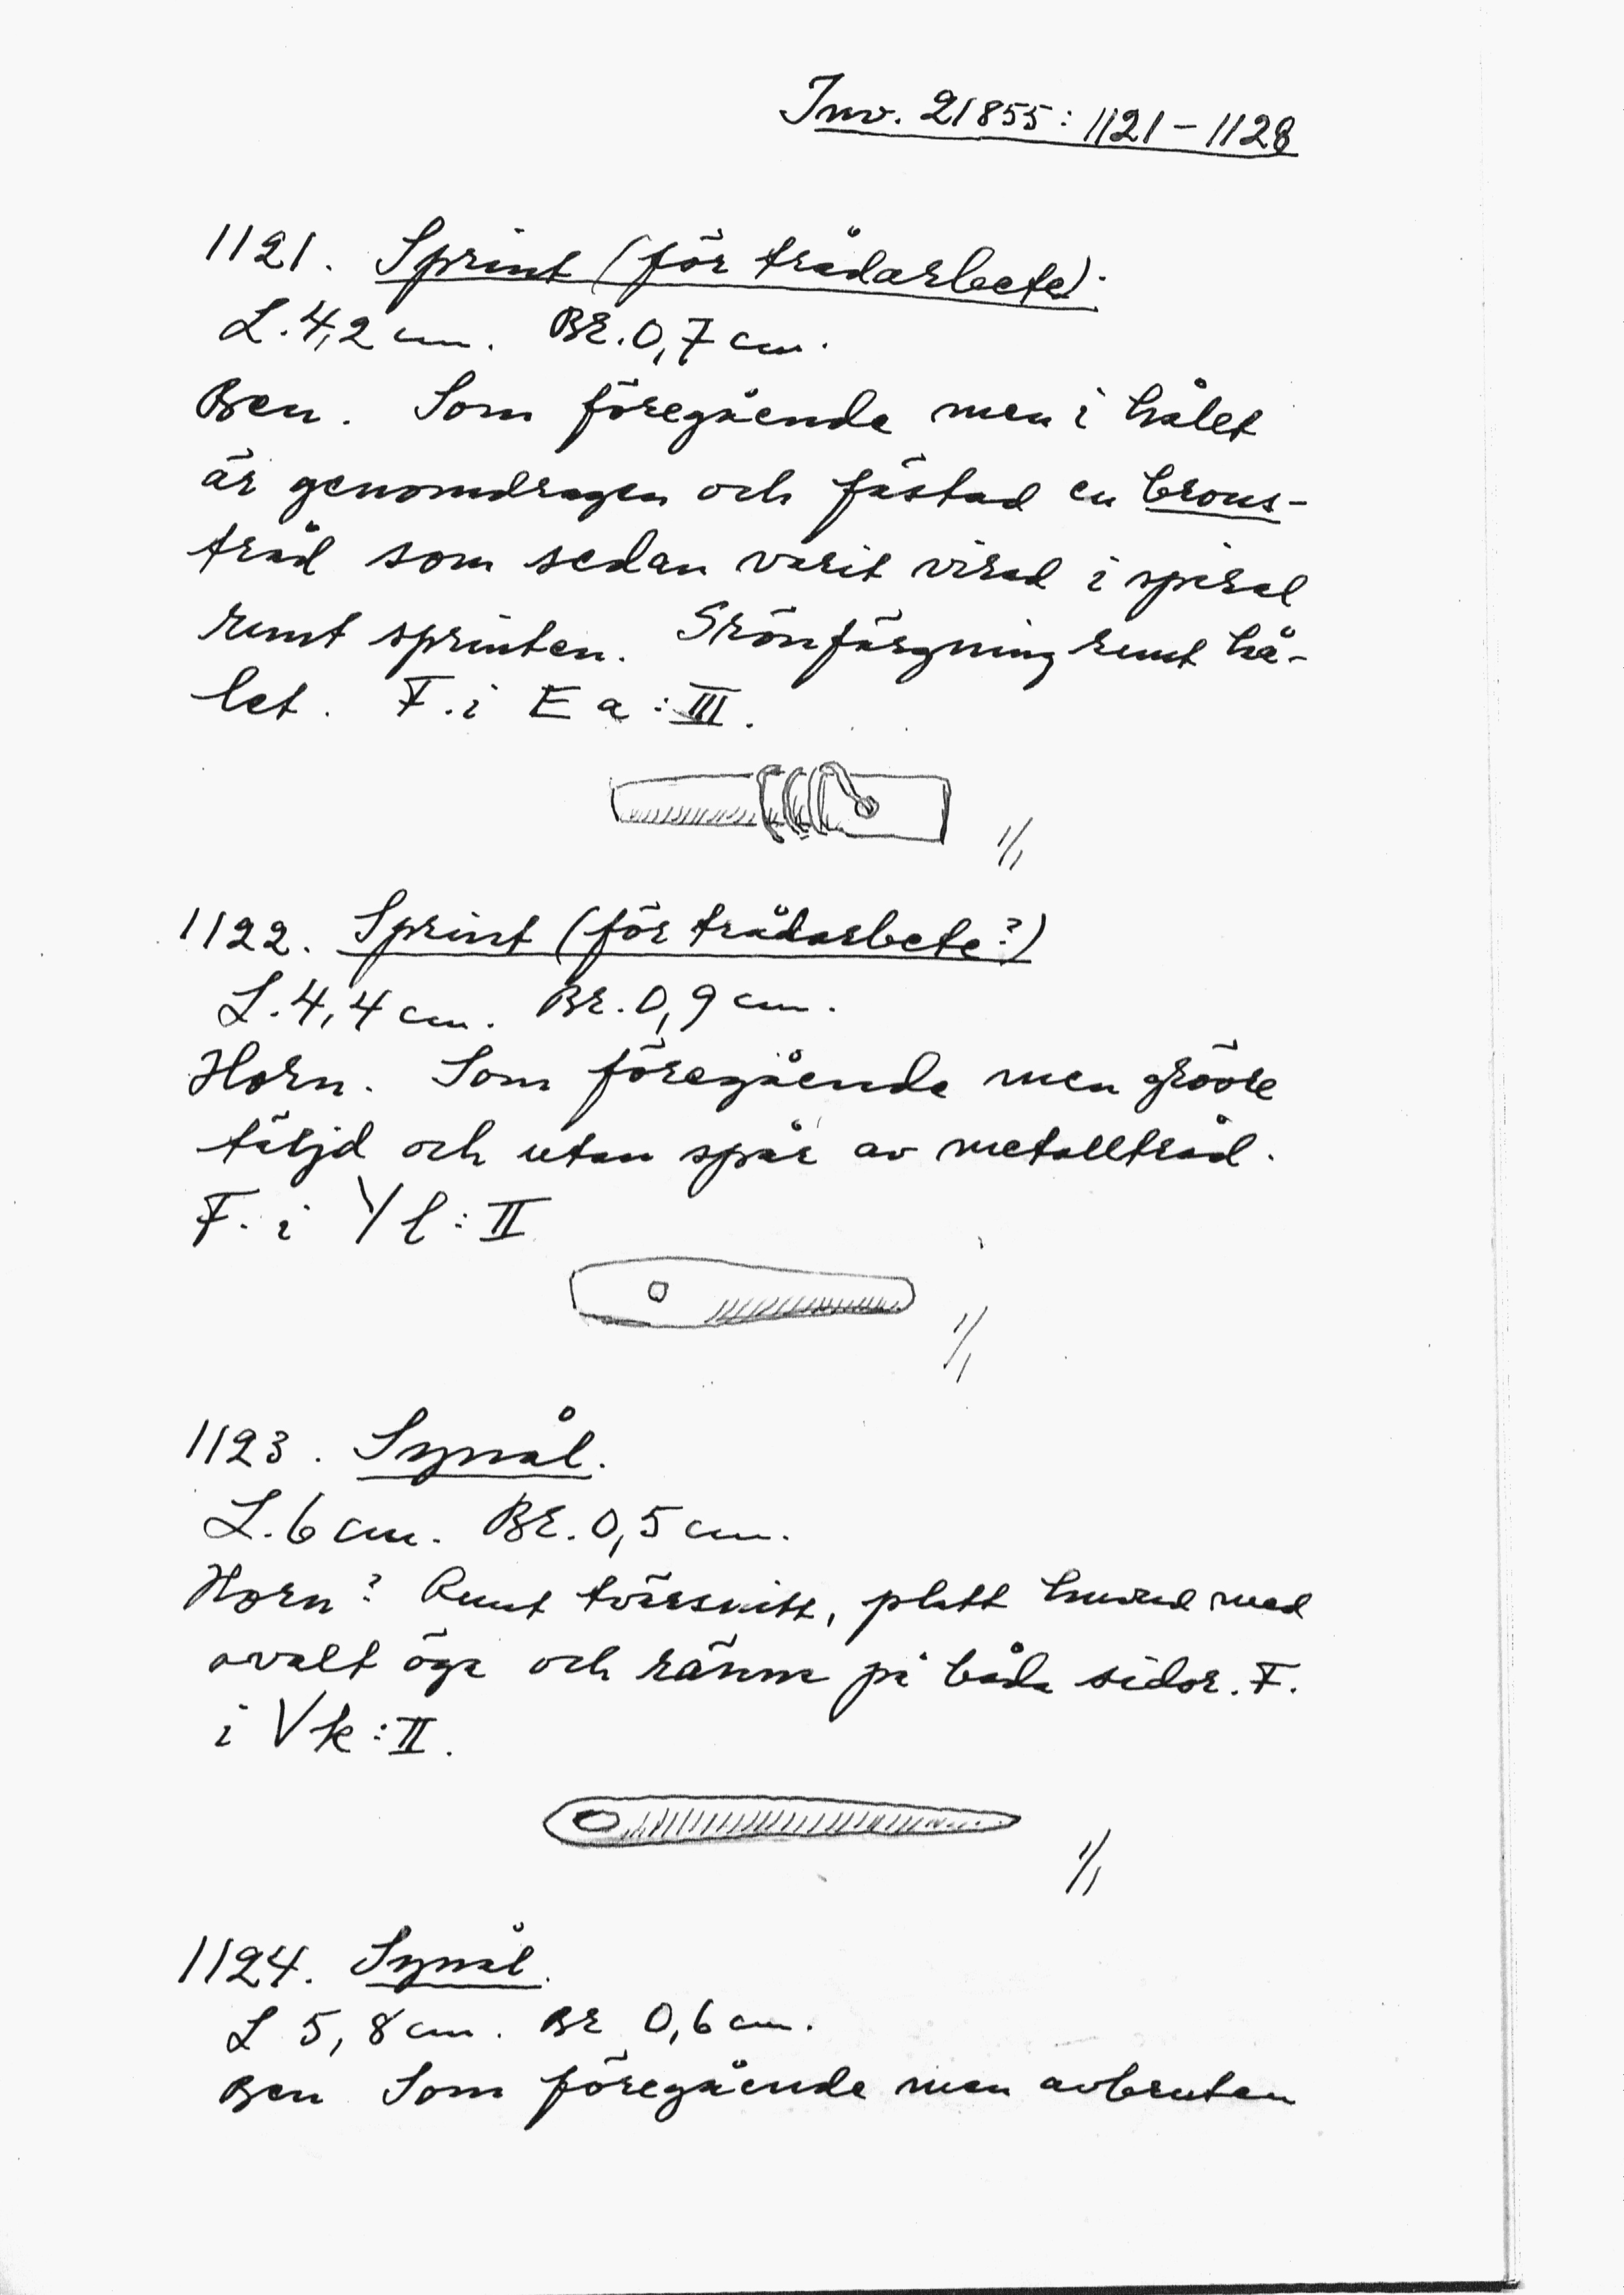 Inv. 21855:1121-1128
1121. Sprint (för trådarbete).
L. 4,2 cm. Br. 0,7 cm.
Ben. Som föregående men i hålet
är genomdragen och fästad en brons-
tråd som sedan varit virad i spiral
runt sprinten. Grönfärgning runt hå-
let. F. i E a : III.
1/1
1122. Sprint (för trådarbete?)
L. 4,4 cm. Br. 0,9 cm.
Horn. Som föregående men grövre
täljd och utan spår av metalltråd.
F. i Y l : II
1/1
1123. Synål.
L. 6 cm. Br. 0,5 cm.
Horn? Runt tvärsnitt, platt huvud med
ovalt öga och ränna på båda sidor. F.
i V k : II.
1/1
1124. Synål.
L 5,8 cm. Br 0,6 cm.
Ben Som föregående men avbruten